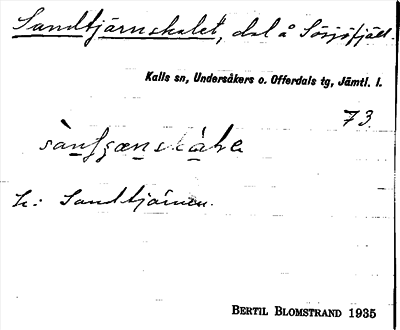 Sandtjärnskalet, del å Sösjöfjäll.
Kalls sn, Undersåkers o. Offerdals tg, Jämtl. l.
73.
L: Sandtjärnen.
BERTIL BLOMSTRAND 1935